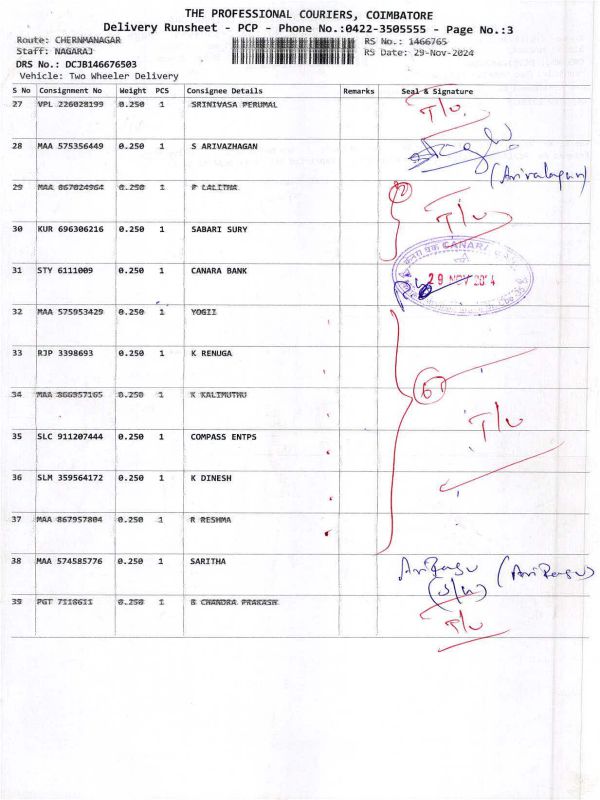 THE PROFESSIONAL COURIERS, COIMBATORE
Delivery Runsheet - PCP - Phone No.:0422-3505555 - Page No.:3
Route: CHERNMANAGAR RS No.: 1466765
Staff: NAGARAJ RS Date: 29-Nov-2024
DRS No.: DCJB146676503
Vehicle: Two Wheeler Delivery
S No Consignment No Weight PCS Consignee Details Remarks Seal & Signature
27 VPL 226028199 0.250 1 SRINIVASA PERUMAL T/U
28 MAA 575356449 0.250 1 S ARIVAZHAGAN
(Arivalagan)
29 MAA 867024964 0.250 1 P LALITHA
T/U
30 KUR 696306216 0.250 1 SABARI SURY
31 STY 6111009 0.250 1 CANARA BANK CANARA
29 NOV
32 MAA 575953429 0.250 1 YOGII
33 RJP 3398693 0.250 1 K RENUGA
34 MAA 866957165 0.250 1 K KALIMUTHU 6
T/U
35 SLC 911207444 0.250 1 COMPASS ENTPS
36 SLM 359564172 0.250 1 K DINESH
37 MAA 867957804 0.250 1 R RESHMA
38 MAA 574585776 0.250 1 SARITHA
39 PGT 7118611 0.250 1 B CHANDRA PRAKASH T/U